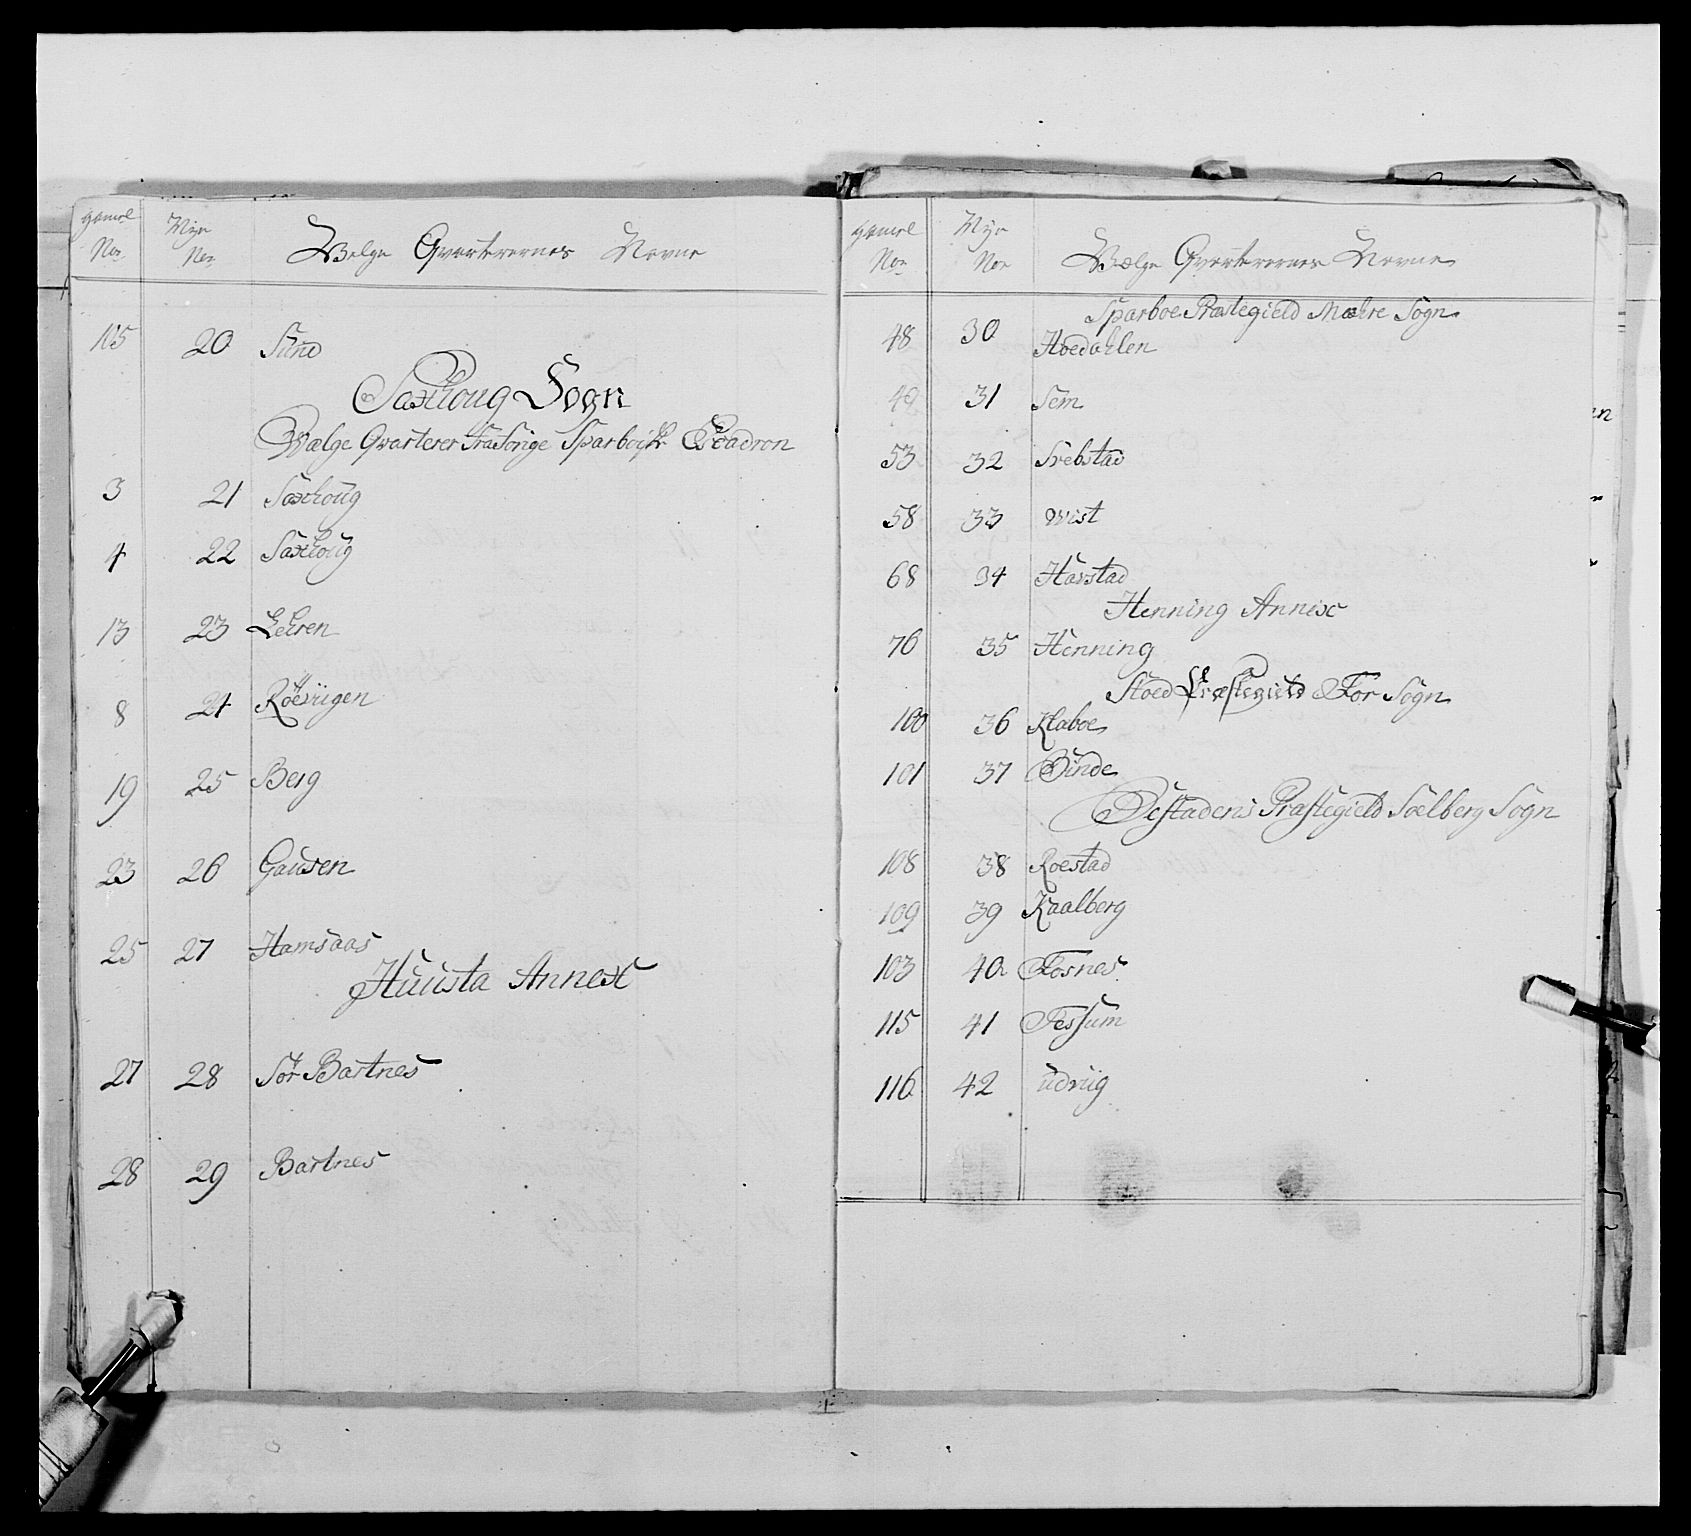 Gamel Nor Nye Nor Welge Qvarterernes Navne
105 20 Sund
Saxhoug Sogn
Wælge Qvarterer fra Sorige Sparboiske Esqadron
3 21 Saxhoug
4 22 Saxhoug
13 23 Lehren
8 24 Röesvigen
19 25 Berg
23 26 Gausen
25 27 Hamsaas
Huusta Annex
27 28 Sör Bartnes
28 29 Bartnes
Gamel Nor Nye Nor Wælge Qvarterernes Navne
Sparboe Præstegield Mæhre Sogn
48 30 Hoedahlen
49 31 Sem
53 32 Srebstad
58 33 Wist
68 34 Harstad
Henning Annex
76 35 Henning
Stoed Præstegield For Sogn
100 36 Klaboe
101 37 Binde
Öestadens Præstegield Soelberg Sogn
108 38 Roestad
109 39 Kaalberg
103 40 Fosnes
115 41 Fessum
116 42 udviig